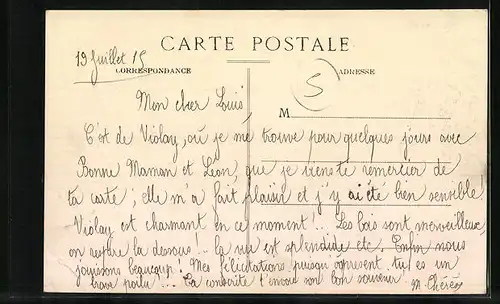 19 Juillet 15
CARTE POSTALE
CORRESPONDANCE
ADRESSE
5
M
Mon cher Louis
C'est de Violay, où je me trouve pour quelques jours avec
Bonne Maman et Léon, que je viens te remercier de
ta carte ; elle m'a fait plaisir et j'y ai été bien sensible !
Violay est charmant en ce moment !.. Les bois sont merveilleux,
on respire la dessous... la vue est splendide etc. Enfin nous
jouissons beaucoup ! Mes félicitations puisqu'àprésent tu es un
brave poilu !... Ta t'envoie son bon souvenir.